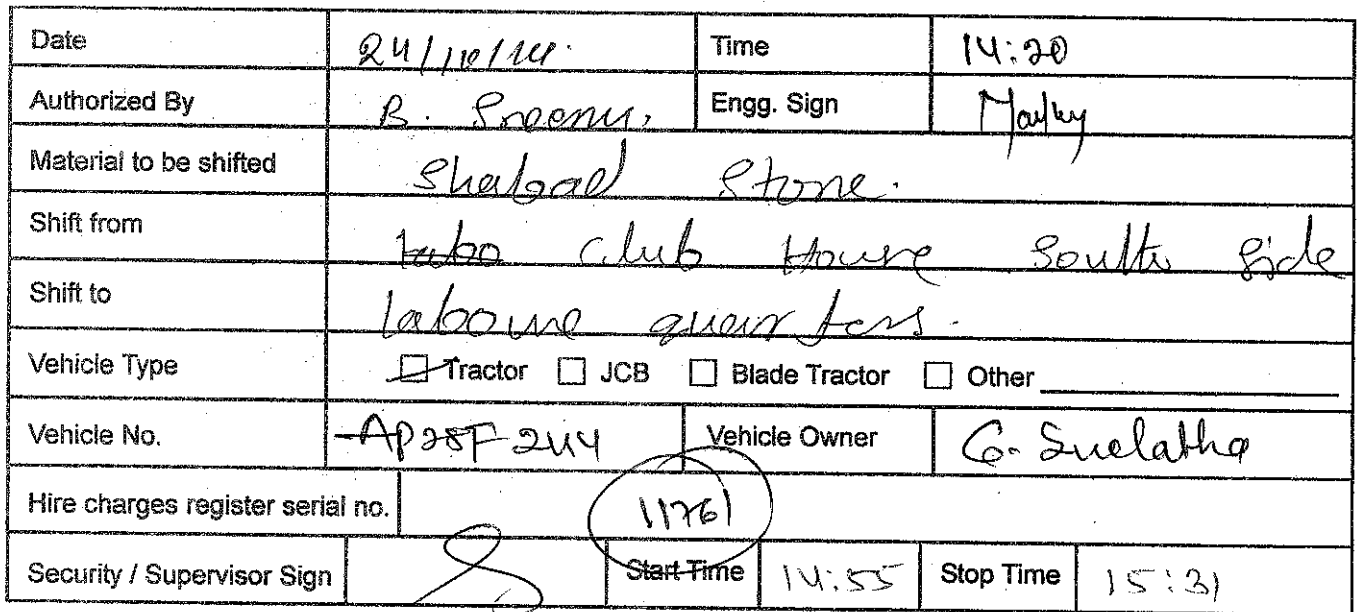 Date 24/10/14. Time 14:20
Authorized By B. Sreenu, Engg. Sign
Material to be shifted Shabad Stone.
Shift from labo Club House South Side
Shift to laboure quarters.
Vehicle Type Tractor JCB Blade Tractor Other
Vehicle No. AP28F 244 Vehicle Owner G. Suelatha
Hire charges register serial no. 11761
Security / Supervisor Sign Start Time 14:55 Stop Time 15:31